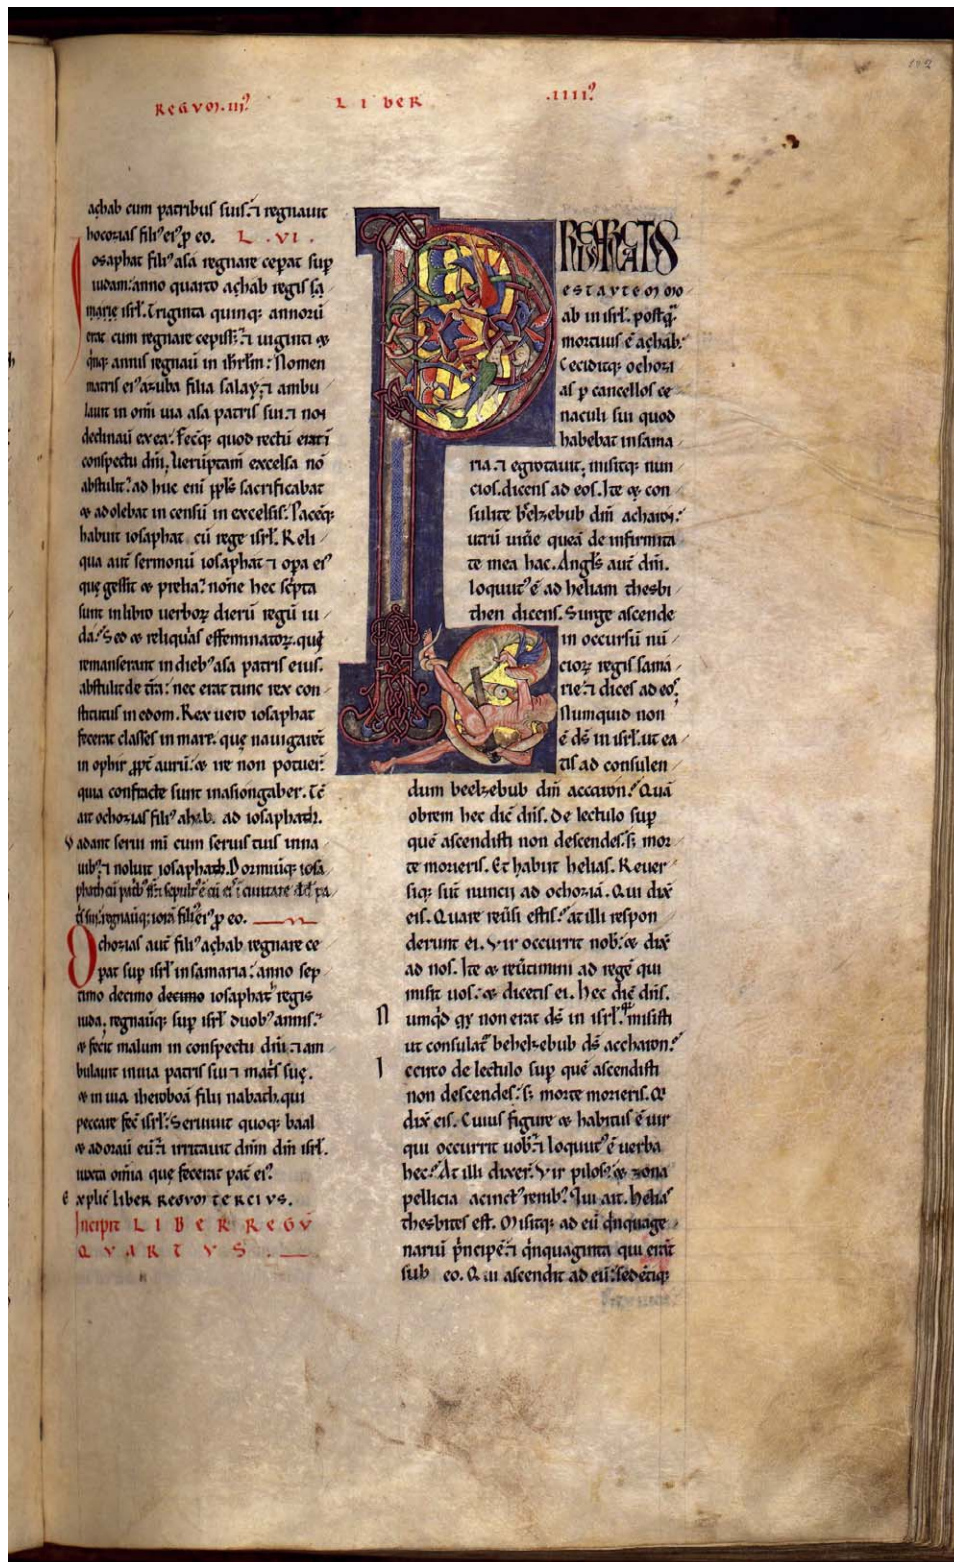 REGVM.III⁹ LIBER .IIII⁹
102
achab cum patribus suis.⁊ regnauit
hocozias fili⁹ ei⁹ ꝑ eo. L.VI.
Iosaphat fili⁹ asa regnare cepat sup
iudam: anno quarto achab regis sa
marię isrl̄. Triginta quinq; annorū
erat cum regnare cepiss&:⁊ uiginti &
annis regnauī in ihrl̄m: Nomen
matris ei⁹ azuba filia salay,⁊ ambu
lauit in om̄i uia asa patris sui.⁊ nō
declinauī ex ea. fecq; quod rectū erat ī
conspectu dn̄i. Ueruptam̄ excelsa nō
abstulit: ad huc eni ppl̄s sacrificabat
& adolebat incensū in excelsis. Pacēq;
habuit iosaphat cū rege isrl̄. Reli
qua aut̄ sermonū iosaphat ⁊ opa ei⁹
quę gessit & prelia: nonne hec sc̄pta
sunt in libro uerboꝝ dierū regū iu
da. Sed & reliquias effeminatoꝝ. qui
remanserant in dieb⁹ asa patris eius.
abstulit de tr̄a: nec erat tunc rex con
stitutus in edom. Rex uero iosaphat
fecerat classes in mare. quę nauigarēt
in ophir ꝓpt̄ aurū: & ire non potuer̄:
quia confracte sunt in asiongaber. Tc̄
ait ochozias fili⁹ ahab. ad iosaphath.
Vadant serui mi cum seruis tuis in na
uib⁹:⁊ noluit iosaphath. Dormiuitq; iosa
phath cū patb⁹ & sepult⁹ ē cū ei⁹ ī ciuitate dd̄ pa
tris sui. regnauitq; iorā fili⁹ ei⁹ ꝑ eo.
Ochozias aut̄ fili⁹ achab regnare ce
pat sup isrl̄ in samaria: anno sep
timo decimo decimo iosaphat regis
iuda. regnauitq; sup isrl̄ duob⁹ annis.
& fecit malum in conspectu dn̄i:⁊ am
bulauit in uia patris sui ⁊ mat̄s suę.
& in uia iheroboā filii nabath. qui
peccare fec̄ isrl̄. Seruiuit quoq; baal
& adorauī eū:⁊ irritauit dn̄m dm̄ isrl̄.
iuxta om̄ia quę fecerat pat̄ ei⁹.
Explic̄ LIBER REGVM TERCIVS.
Incipit LIBER REGŪ
QVARTVS.
PREVARICATVS
EST AVTEM MO
ab in isrl̄. postq̄
mortuus ē achab.
Ceciditq; ochozi
as ꝑ cancellos ce
naculi sui quod
habebat in sama
ria.⁊ egrotauit. misitq; nun
cios. dicens ad eos. Ite & con
sulite belzebub dm̄ acharon:
utrū uiuē queā de infirmita
te mea hac. Angl̄s aut̄ dn̄i.
loquut⁹ ē ad heliam thesbi
then dicens. Surge ascende
in occursū nū
cioꝝ regis sama
rie:⁊ dices ad eos.
Numquid non
ē ds̄ in isrl̄. ut ea
tis ad consulen
dum beelzebub dm̄ accaron? Quā
obrem hec dic̄ dn̄s. De lectulo sup
quē ascendisti non descendes. s; mor
te morieris. Et habiit helias. Reuer
siq; sut̄ nuncii ad ochoziā. Qui dix̄
eis. Quare reūsi estis? at illi respon
derunt ei. Vir occurrit nob̄: & dix̄
ad nos. Ite & reūtimini ad regē qui
misit uos: & dicetis ei. Hec dic̄ dn̄s.
Numq̄d qꝫ non erat ds̄ in isrl̄. misisti
ut consulat̄ behelzebub ds̄ accharon?
Iccirco de lectulo sup quē ascendisti
non descendes: s; morte morieris. Q
dix̄ eis. Cuius figure & habitus ē uir
qui occurrit uob̄:⁊ loquut⁹ ē uerba
hec? At illi dixer̄. Vir pilos⁹ & zona
pellicia acinct⁹ renib⁹. Qui ait. helias
thesbites est. Misitq; ad eū q̄nquage
nariū p̄ncipē:⁊ q̄nquaginta qui erāt
sub eo. Qui ascendit ad eū: sedētiq;